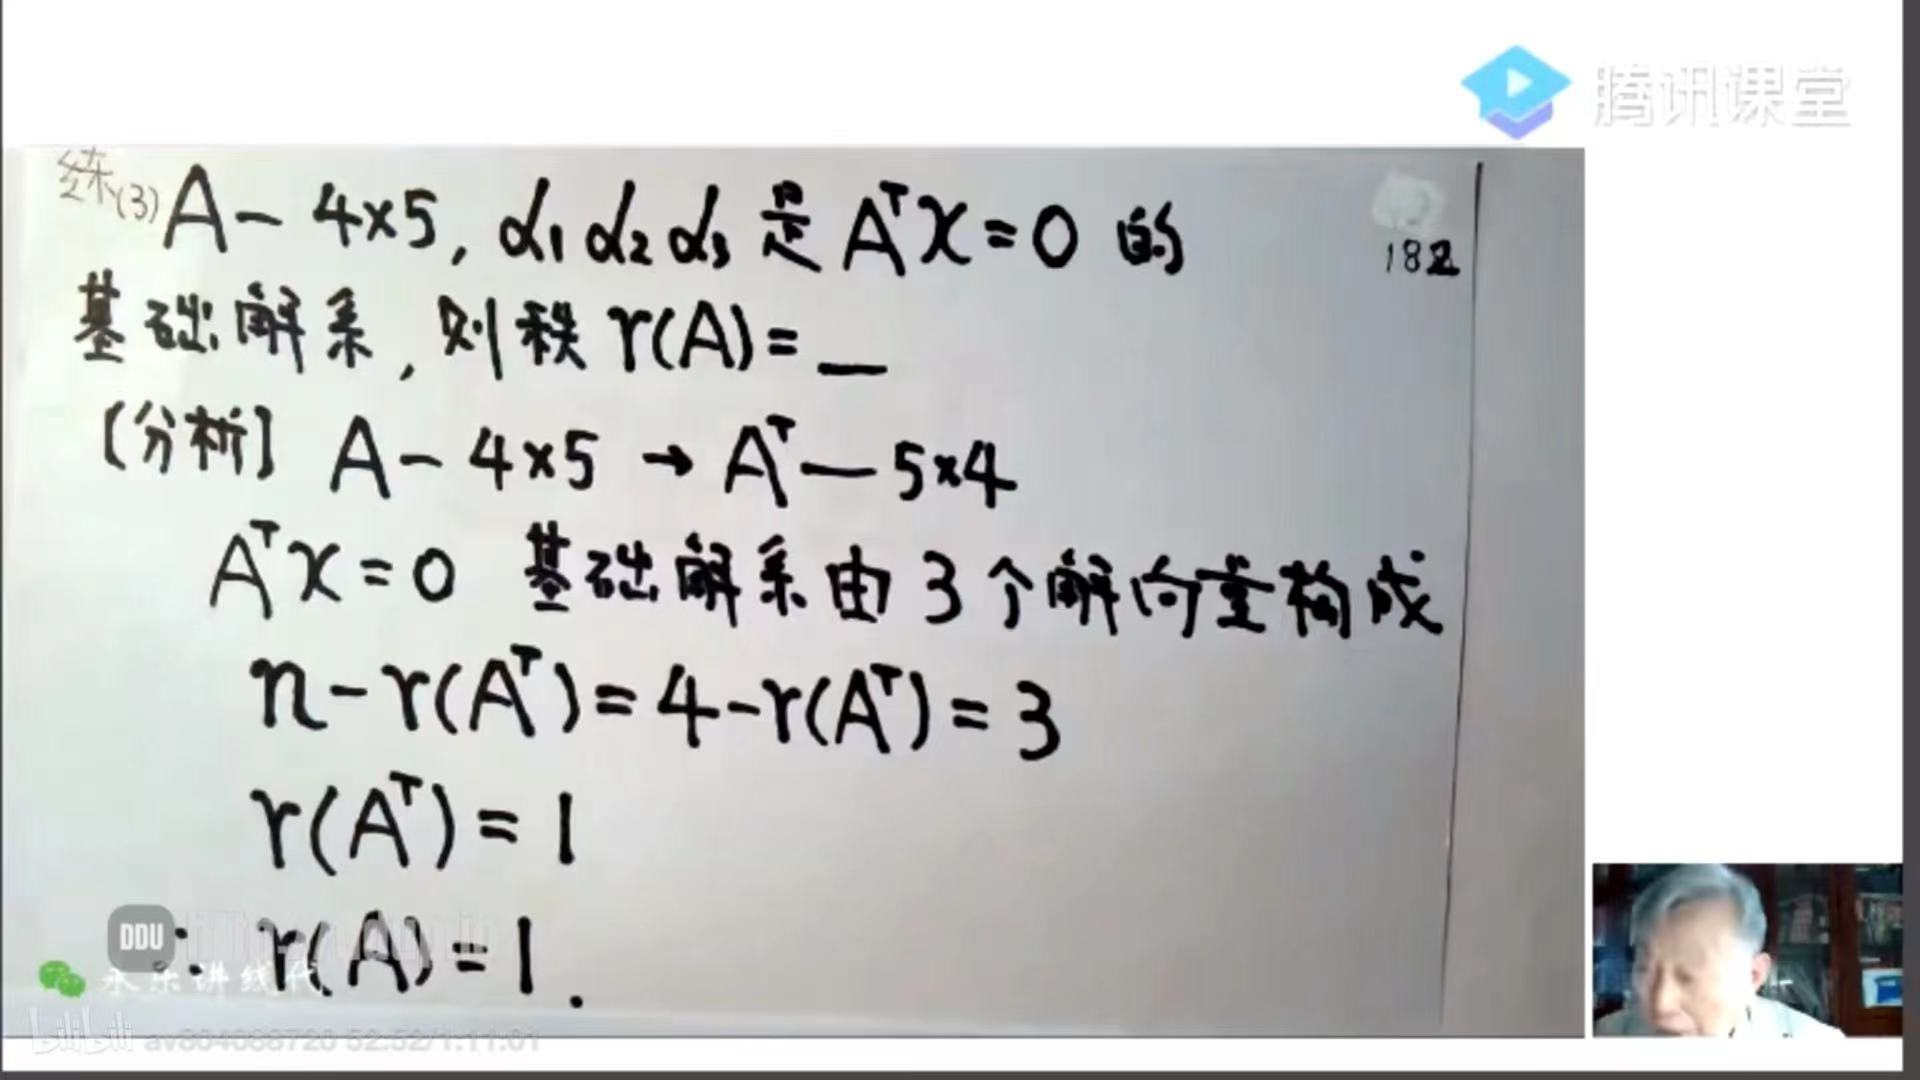 腾讯课堂
练(3) A－4×5, α₁ α₂ α₃ 是 AᵀX=0 的
182
基础解系, 则秩 r(A)=＿
[分析] A－4×5 → Aᵀ—5×4
AᵀX=0 基础解系由3个解向量构成
n-r(Aᵀ)=4-r(Aᵀ)=3
r(Aᵀ)=1
∴ r(A)=1.
DDU
永乐讲线代
bilibili av804088720 52:52/1:11:01